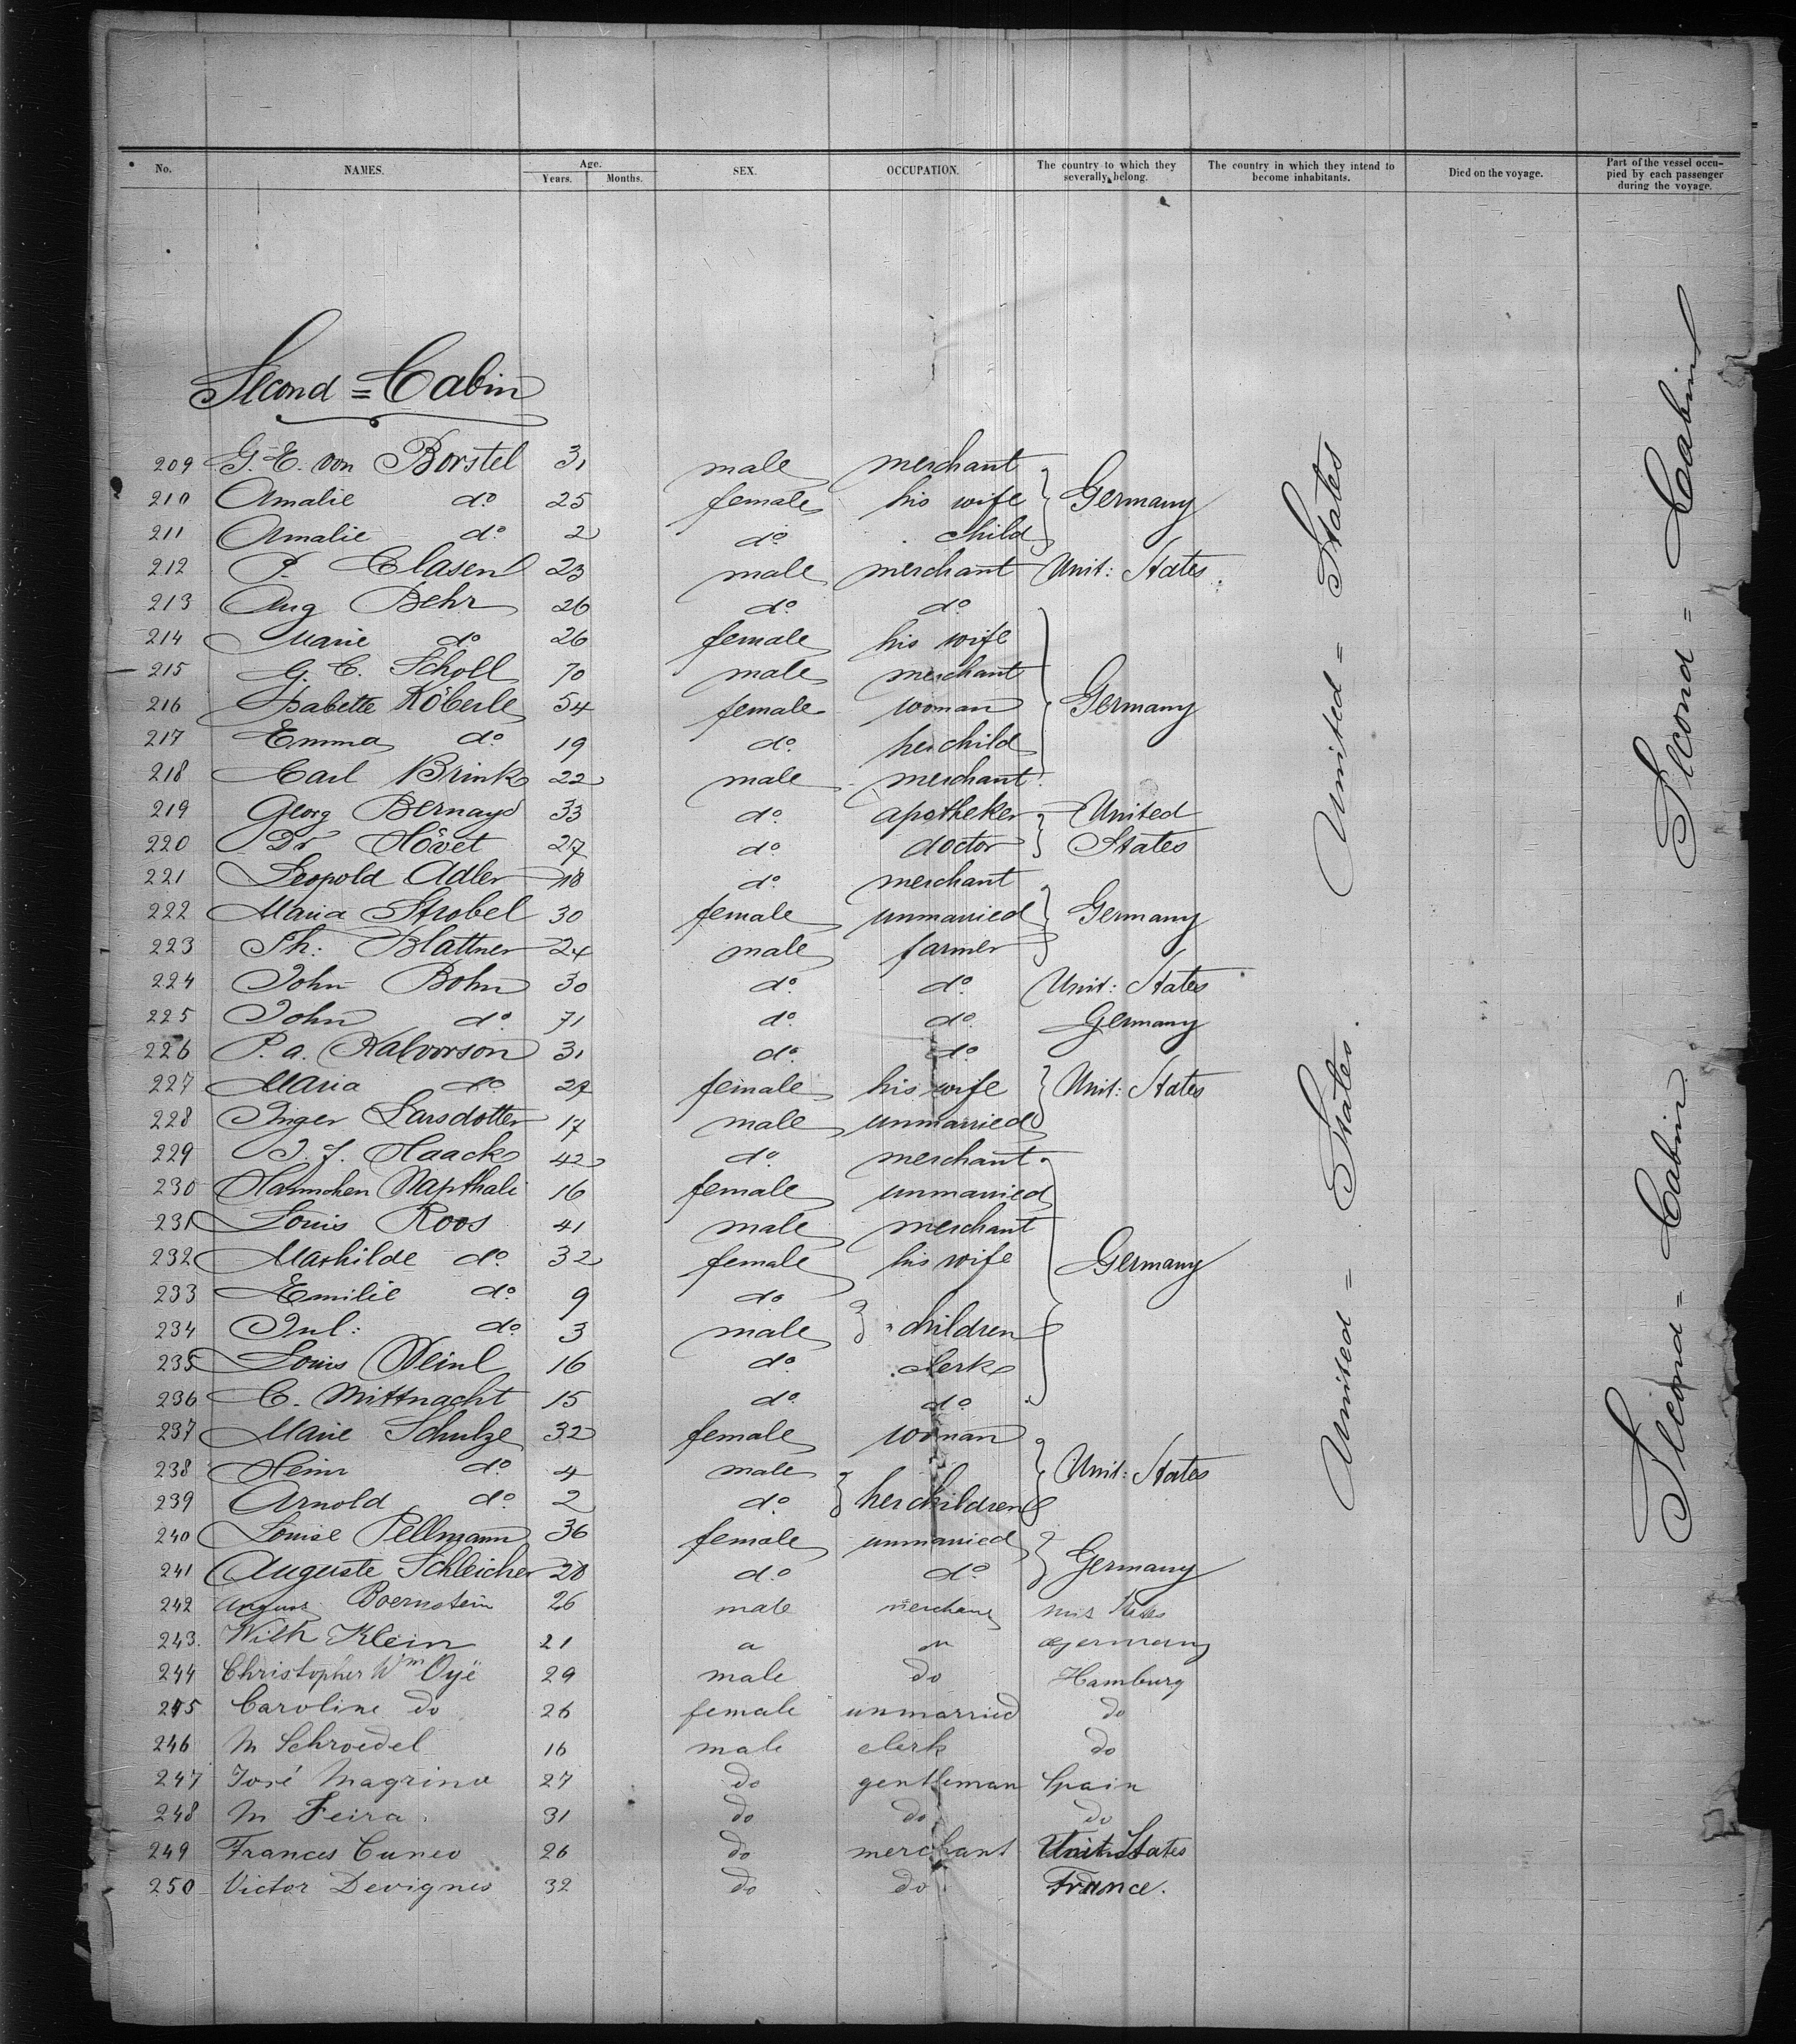 No. NAMES. Age. Years. Months. SEX. OCCUPATION. The country to which they severally belong. The country in which they intend to become inhabitants. Died on the voyage. Part of the vessel occupied by each passenger during the voyage.
Second = Cabin
209 G. E. von Borstel 31 male merchant
210 Amalie do 25 female his wife Germany
211 Amalie do 2 do child
212 P. Clasen 23 male merchant Unit: States
213 Aug Behr 26 do do
214 Marie do 26 female his wife
215 G. C. Scholl 70 male merchant
216 Babette Köberle 54 female woman Germany
217 Emma do 19 do her child
218 Carl Brink 22 male merchant
219 Georg Bernays 33 do apotheker United
220 Dr Hövet 27 do doctor States
221 Leopold Adler 18 do merchant
222 Maria Strobel 30 female unmarried Germany
223 Th: Blattner 24 male farmer
224 John Bohn 30 do do Unit: States
225 John do 71 do do Germany
226 P. a. Halvorson 31 do do
227 Maria do 27 female his wife Unit: States
228 Inger Larsdotter 17 male unmarried
229 J. J. Haack 42 do merchant
230 Hannchen Napthali 16 female unmarried
231 Louis Roos 41 male merchant
232 Mathilde do 32 female his wife Germany
233 Emilie do 9 do
234 Jul: do 3 male children
235 Louis Weinl 16 do clerk
236 C. Mittnacht 15 do do
237 Marie Schulze 32 female woman
238 Heinr do 4 male Unit: States
239 Arnold do 2 do her children
240 Louise Pellmann 36 female unmarried
241 Auguste Schleicher 28 do do Germany
242 August Boernstein 26 male merchant Unit States
243. Wilh Klein 21 Germany
244 Christopher Wm Oyë 29 male do Hamburg
245 Caroline do 26 female unmarried do
246 M Schroedel 16 male clerk do
247 José Magrina 27 do gentleman Spain
248 M Feira 31 do do do
249 Frances Cuneo 26 do merchant Unit States
250 Victor Devignes 32 do do France.
United = States
United = States.
Second = Cabin
Second = Cabin.